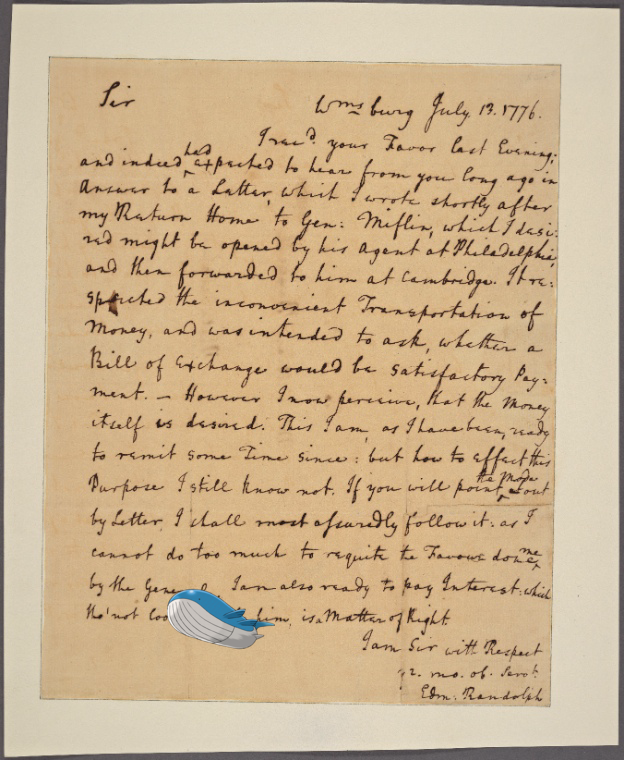 Sir
Wmsburg July 13. 1776.
I recd. your Favor last Evening;
and indeed had expected to hear from you long ago in
answer to a Letter, which I wrote shortly after
my Return Home to Gen: Miflin, which I desi:
red might be opened by his agent at Philadelphia,
and then forwarded to him at Cambridge. It re:
spected the inconvenient Transportation of
Money, and was intended to ask, whether a
Bill of Exchange would be satisfactory Pay=
ment. — However I now perceive, that the Money
itself is desired. This I am, as I have been, ready
to remit some Time since: but how to effect this
Purpose I still know not. If you will point the Mode out
by Letter, I shall most assuredly follow it: as I
cannot do too much to requite the Favour done me
by the I am also ready to pay Interest: which
tho' not him, is a Matter of Right
I am Sir with Respect
yr. mo. ob. Servt.
Edm: Randolph